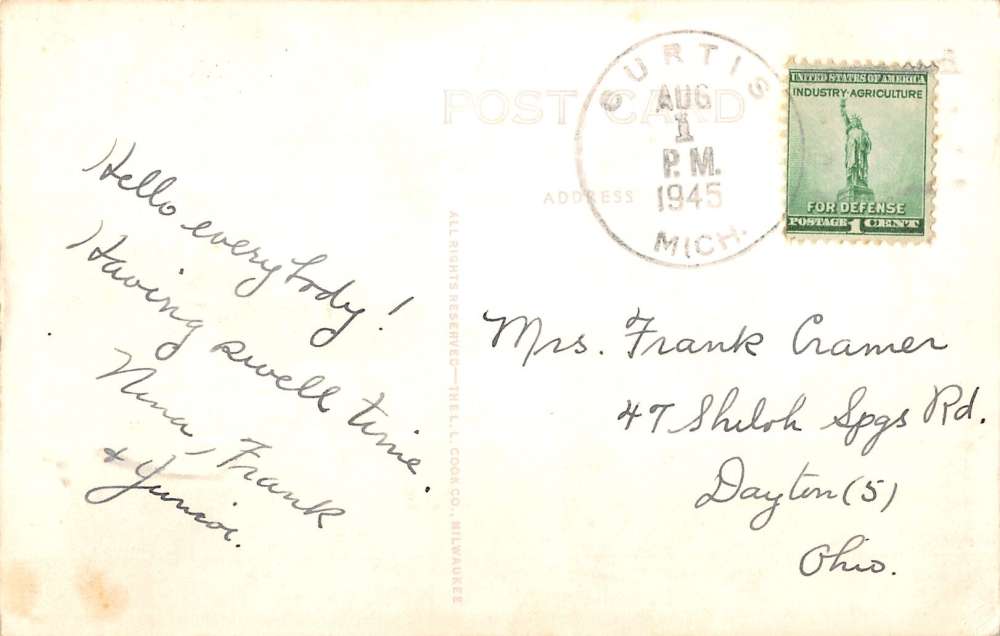 POST CARD
ADDRESS
CURTIS
AUG
1
P.M.
1945
MICH.
UNITED STATES OF AMERICA
INDUSTRY·AGRICULTURE
FOR DEFENSE
POSTAGE 1 CENT
Hello everybody!
Having swell time.
Nina, Frank
& Junior.
ALL RIGHTS RESERVED—THE L. L. COOK CO., MILWAUKEE
Mrs. Frank Cramer
47 Shiloh Spgs Rd.
Dayton (5)
Ohio.